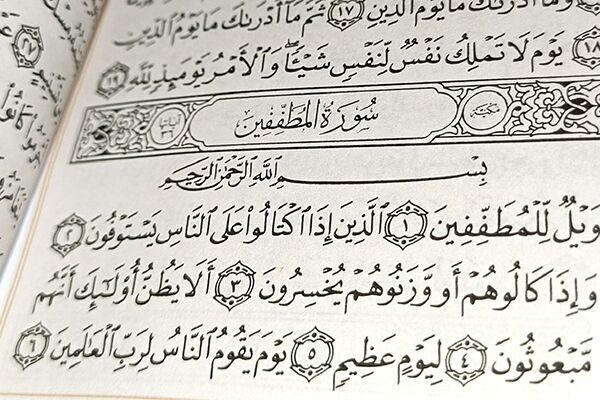 وَمَا أَدْرَىٰكَ مَا يَوْمُ الدِّينِ ١٧ ثُمَّ مَا أَدْرَىٰكَ مَا يَوْمُ الدِّينِ
١٨ يَوْمَ لَا تَمْلِكُ نَفْسٌ لِّنَفْسٍ شَيْـًٔا ۖ وَالْأَمْرُ يَوْمَئِذٍ لِّلَّهِ ١٩
مكية سُورَةُ الْمُطَفِّفِينَ آياتها ٣٦
بِسْمِ اللَّهِ الرَّحْمَٰنِ الرَّحِيمِ
وَيْلٌ لِّلْمُطَفِّفِينَ ١ الَّذِينَ إِذَا اكْتَالُوا عَلَى النَّاسِ يَسْتَوْفُونَ ٢
وَإِذَا كَالُوهُمْ أَو وَّزَنُوهُمْ يُخْسِرُونَ ٣ أَلَا يَظُنُّ أُولَٰئِكَ أَنَّهُم
مَّبْعُوثُونَ ٤ لِيَوْمٍ عَظِيمٍ ٥ يَوْمَ يَقُومُ النَّاسُ لِرَبِّ الْعَالَمِينَ ٦